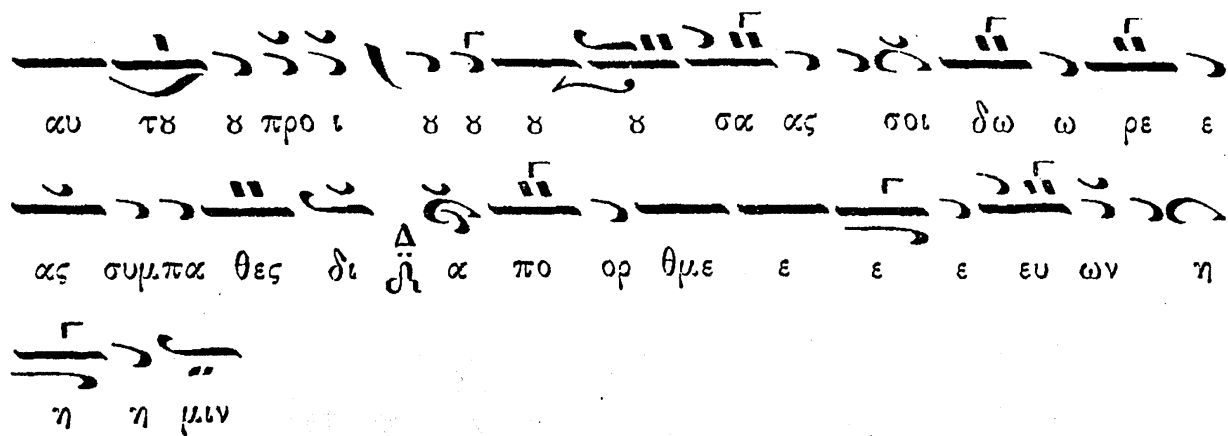 αυ τȣ ȣ προ ι ȣ ȣ ȣ ȣ σα ας σοι δω ω ρε ε
ας συμπα θες δι Δ α πο ορ θμε ε ε ε ευ ων η
η η μιν